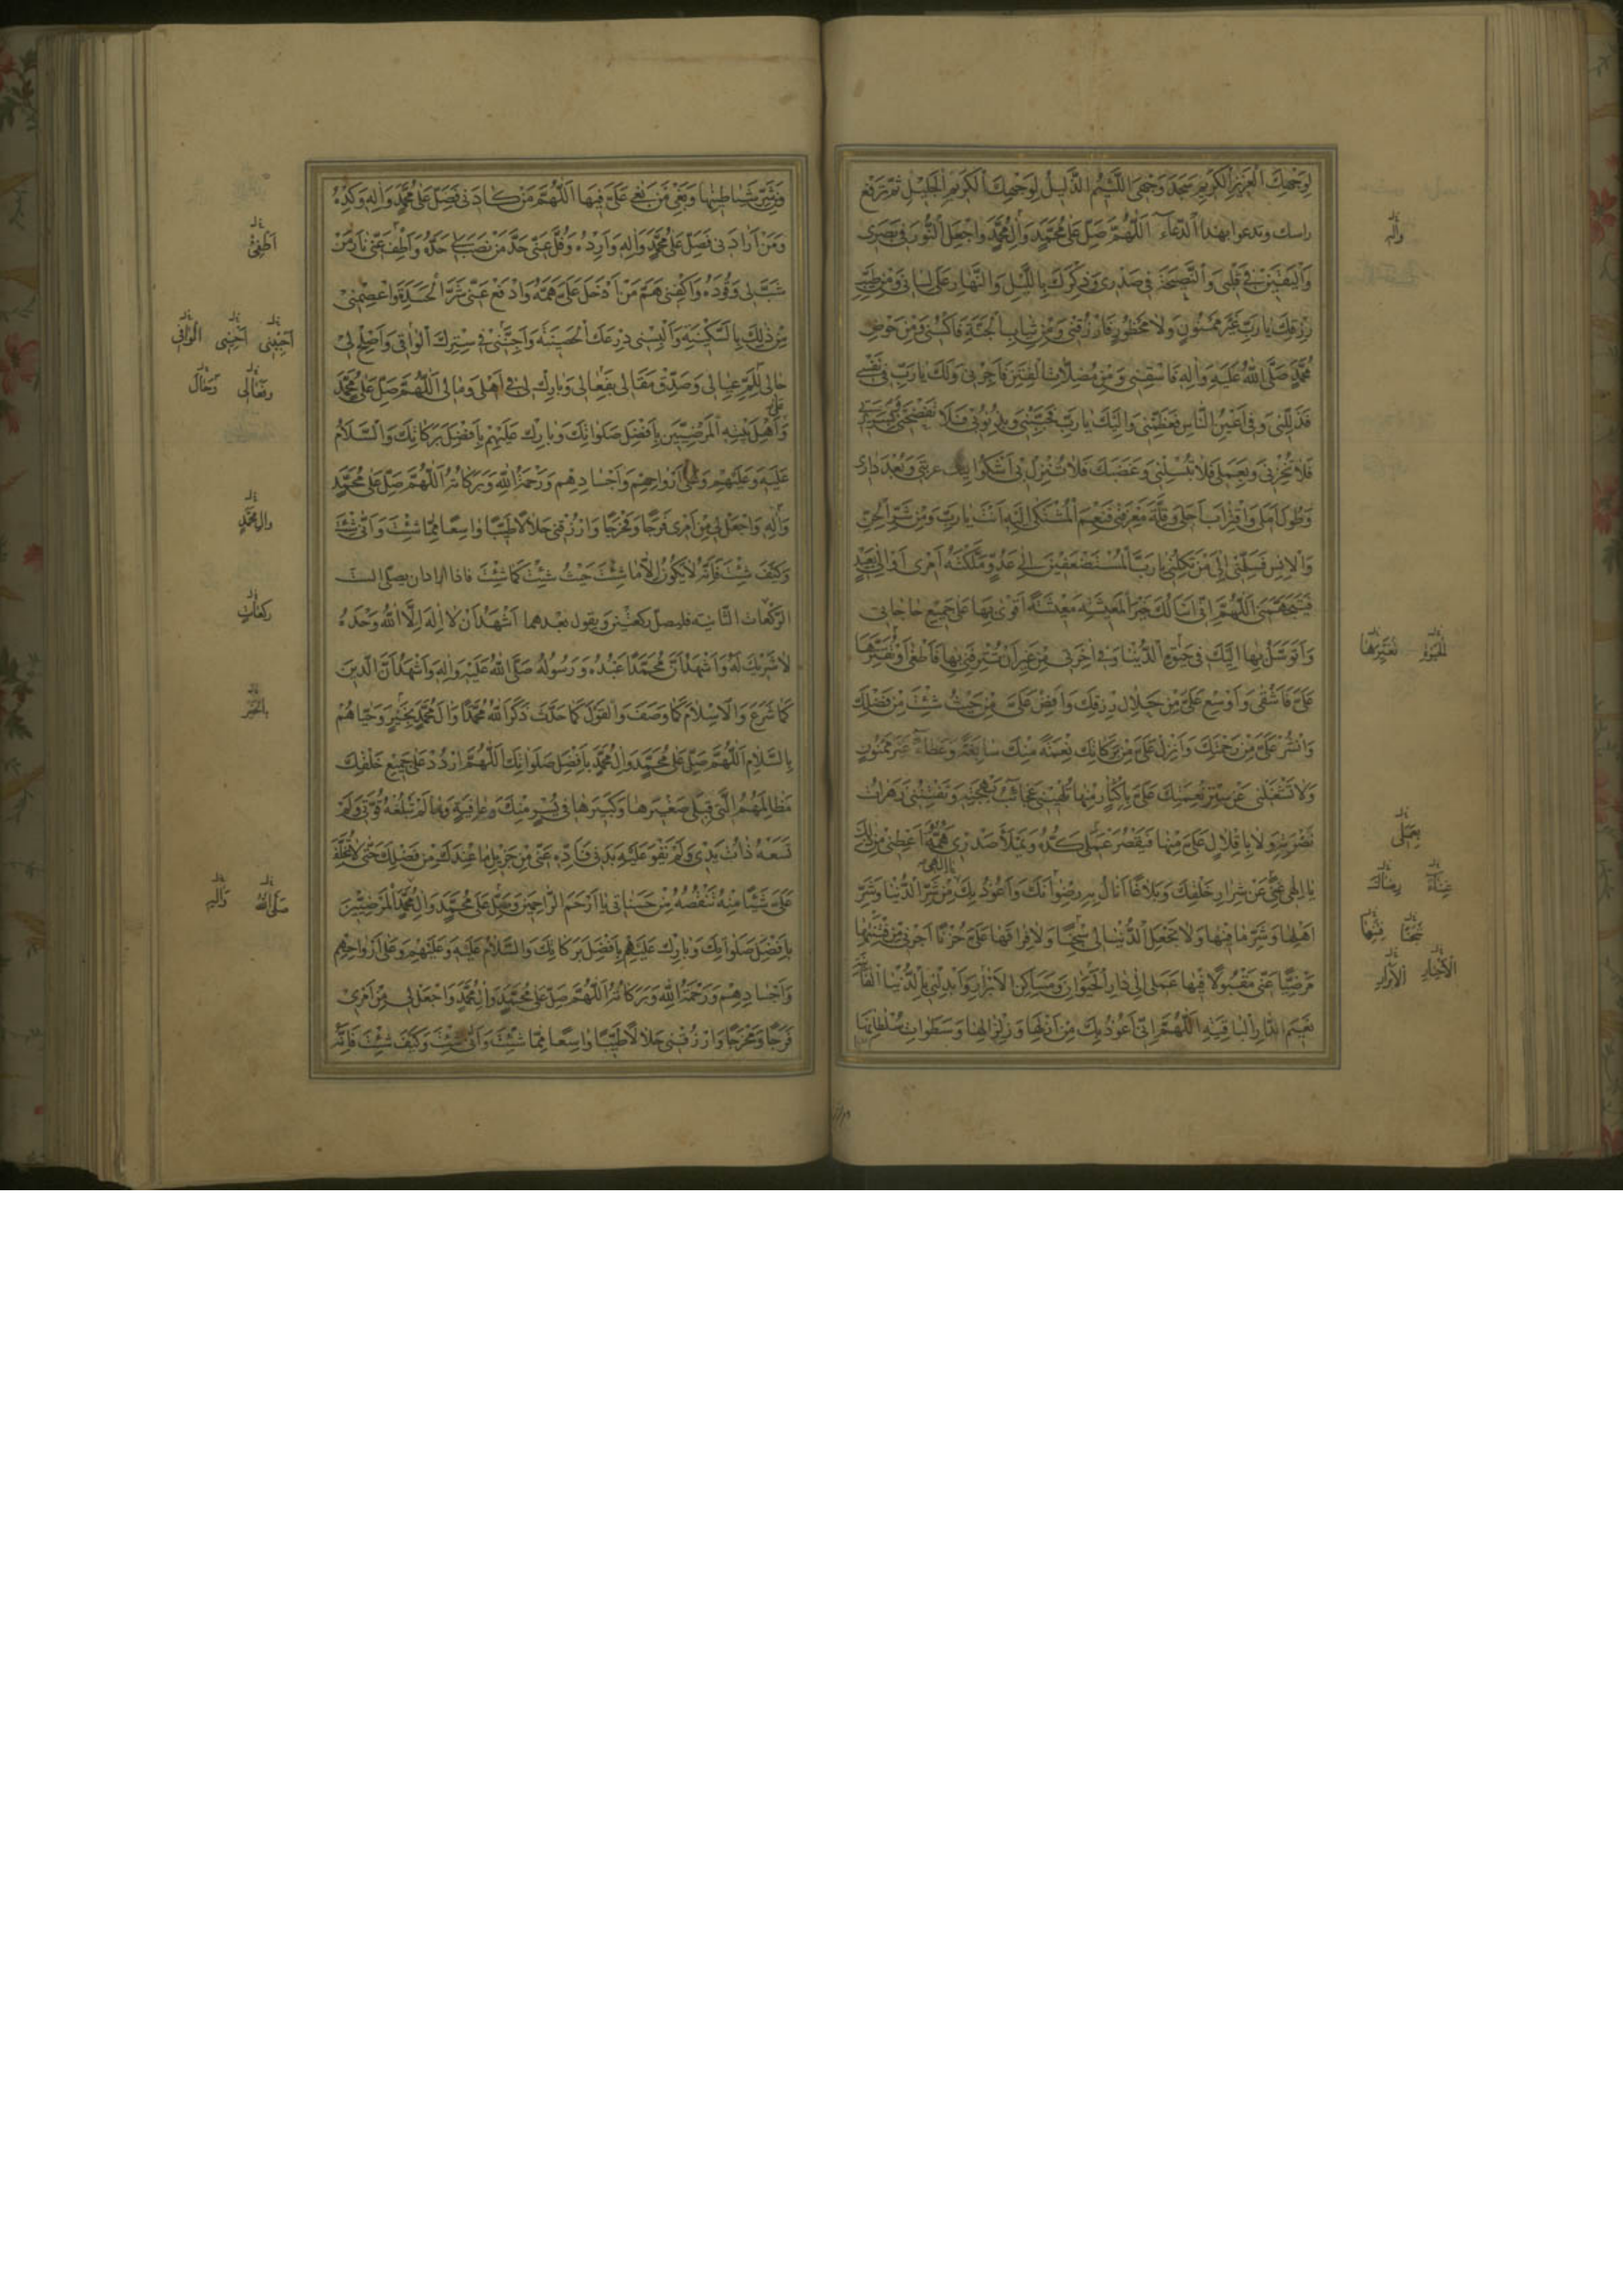 لوجهك العزيز الكريم سجد وجهى اللئيم الذليل لوجهك الكريم الجليل ثم ترفع
راسك وتدعوا بهذا الدعاء اللهم صل على محمد وآل محمد واجعل النور فى بصرى
واليقين فى قلبى والنصيحة فى صدرى وذكرك بالليل والنهار على لسانى ومن طيب
رزقك يا رب غير ممنون ولا محظور فارزقنى ومن ثياب الجنة فاكسنى ومن حوض
محمد صلى الله عليه وآله فاسقنى ومن مضلات الفتن فاجرنى ولك يا رب فى نفسى
فذللنى وفى اعين الناس فعظمنى واليك يا رب فحببنى وبذنوبى فلا تفضحنى وبسريرتى
فلا تخزنى وبعملى فلا تبسلنى وغضبك فلا تنزل بى اشكوا اليك غربتى وبعد دارى
وطول املى واقتراب اجلى وقلة معرفتى فنعم المشتكى اليه انت يا رب ومن شر الجن
والانس فسلمنى الى من تكلنى يا رب المستضعفين الى عدو ملكته امرى او الى بعيد
فيتجهمنى اللهم انى اسالك خير المعيشة معيشة اقوى بها على جميع حاجاتى
واتوسل بها اليك فى حيوة الدنيا وفى اخرتى من غير ان تترفنى بها فاطغى او تقترها
على فاشقى واوسع على من حلال رزقك وافض على من حيث شئت من فضلك
وانشر على من رحمتك وانزل على من بركاتك نعمة منك سابغة وعطاء غير ممنون
ولا تشغلنى عن شكر نعمتك على باكثار منها تلهينى عجائب بهجته وتفتننى زهرات
نضرته ولا باقلال على منها فيقصر بعملى كده ويملأ صدرى همه اعطنى من ذلك
يا الهى غنى عن شرار خلقك وبلاغا انال به رضوانك واعوذ بك من شر الدنيا وشر
اهلها وشر ما فيها ولا تجعل الدنيا لى سجنا ولا فراقها على حزنا اجرنى من فتنتها
مرضيا عنى مقبولا فيها عملى الى دار الحيوان ومساكن الاخيار وابدلنى بالدنيا الفانية
نعيم الدار الباقية اللهم انى اعوذ بك من ازلها وزلزالها وسطوات سلطانها
وآله
للحيوة
تقترها
بعملى
غناء
رضاك
سجنا
فتنها
الاخيار
الابرار
وشر شياطينها وبغى من بغى على فيها اللهم من كادنى فصل على محمد وآله وكده
ومن ارادنى فصل على محمد وآله وارده وفل عنى حد من نصب لى حده واطف عنى نار من
شب لى وقوده واكفنى هم من ادخل على همه وادفع عنى شر الحسدة واعصمنى
من ذلك بالسكينة والبسنى درعك الحصينة واجننى فى سترك الواقى واصلح لى
حالى للم عيالى وصدق مقالى بفعالى وبارك لى فى اهلى ومالى اللهم صل على محمد
وعلى اهل بيته المرضيين بافضل صلواتك وبارك عليهم بافضل بركاتك والسلام
عليه وعليهم وعلى ارواحهم واجسادهم ورحمة الله وبركاته اللهم صل على محمد
وآله واجعل لى من امرى فرجا ومخرجا وارزقنى حلالا طيبا واسعا مما شئت وانى شئت
وكيف شئت فانه لا يكون الا ما شئت حيث شئت كما شئت فاذا اراد ان يصلى الست
الركعات الثانية فليصل ركعتين ويقول بعدهما اشهد ان لا اله الا الله وحده
لا شريك له واشهد ان محمدا عبده ورسوله صلى الله عليه وآله واشهد ان الدين
كما شرع والاسلام كما وصف والقول كما حدث ذكر الله محمدا وآل محمد بخير وحياهم
بالسلام اللهم صل على محمد وآل محمد بافضل صلواتك اللهم اردد على جميع خلقك
مظالمهم التى قبلى صغيرها وكبيرها فى يسر منك وعافية وما لم تبلغه قوتى ولم
تسعه ذات يدى ولم يقو عليه بدنى فاده عنى من جزيل ما عندك من فضلك حتى لا تخلف
على شيئا منه تنقصه من حسناتى يا ارحم الراحمين وصل على محمد وآل محمد المرضيين
بافضل صلواتك وبارك عليهم بافضل بركاتك والسلام عليه وعليهم وعلى ارواحهم
واجسادهم ورحمة الله وبركاته اللهم صل على محمد وآل محمد واجعل لى من امرى
فرجا ومخرجا وارزقنى حلالا طيبا واسعا مما شئت وانى شئت وكيف شئت فانه
اطفئ
الوافى
وفعالى
وآل محمد
ركعات
بالخير
صلى الله
وآله